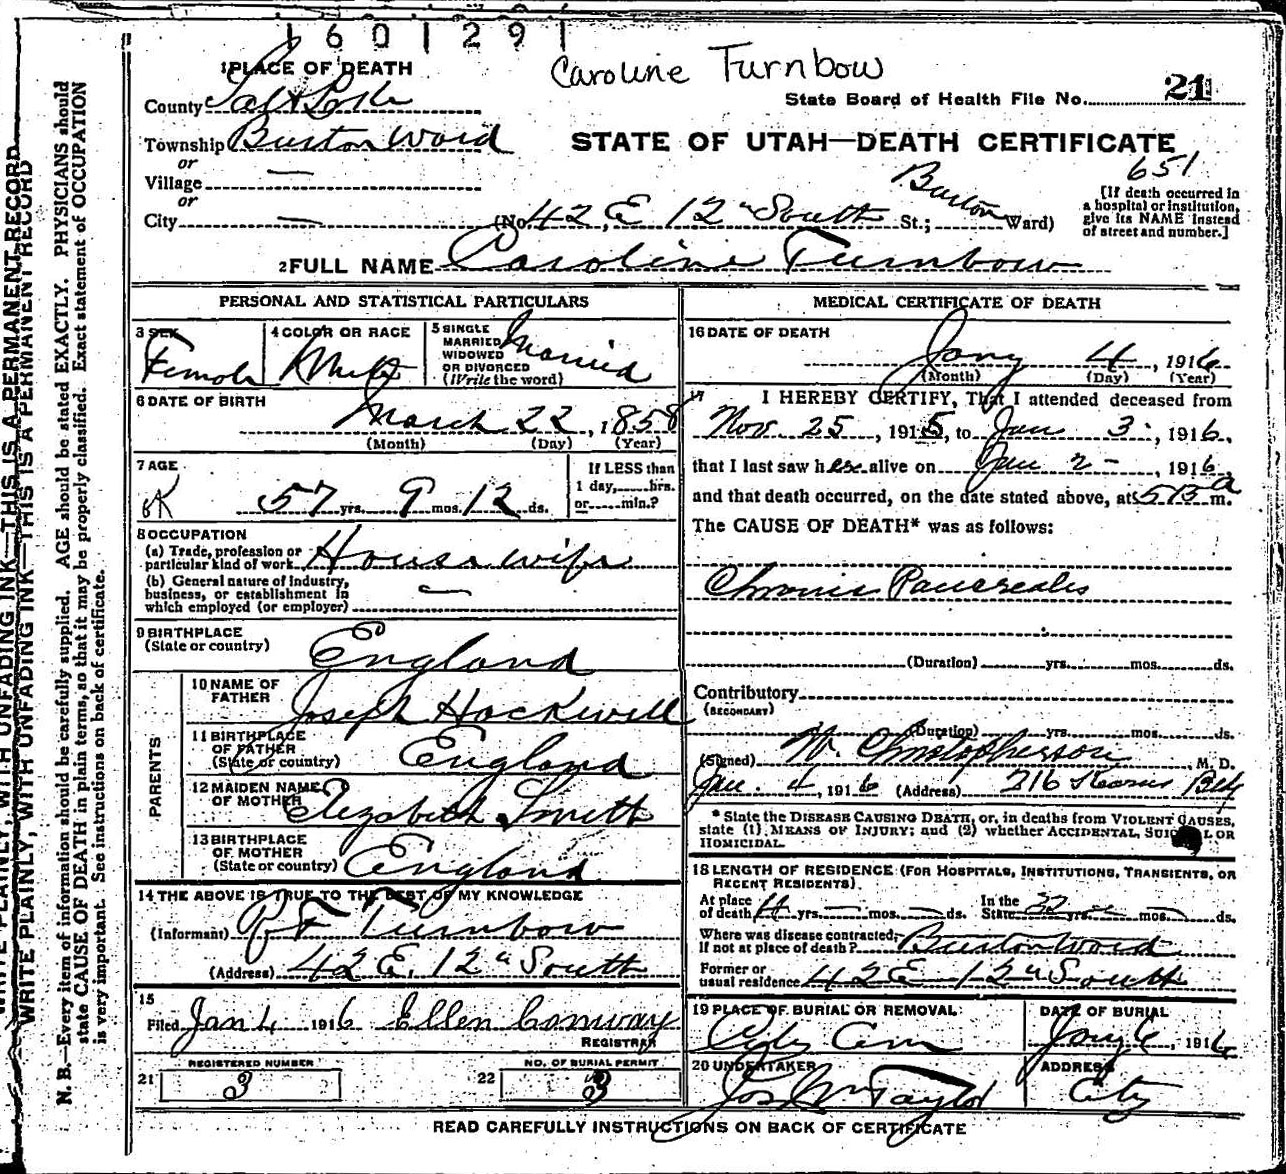 1601291
Caroline Turnbow
1 PLACE OF DEATH
County Salt Lake
State Board of Health File No. 21
Township Burton Ward
or
Village —
or
City —
STATE OF UTAH—DEATH CERTIFICATE
651
[If death occurred in
a hospital or institution,
give its NAME instead
of street and number.]
(No. 42 E 12" South St.; Burton Ward)
2 FULL NAME Caroline Turnbow
PERSONAL AND STATISTICAL PARTICULARS
3 SEX Female
4 COLOR OR RACE White
5 SINGLE
MARRIED
WIDOWED
OR DIVORCED
(Write the word) Married
6 DATE OF BIRTH
March 22, 1858
(Month) (Day) (Year)
7 AGE
57 yrs. 9 mos. 12 ds.
If LESS than
1 day,......hrs.
or......min.?
8 OCCUPATION
(a) Trade, profession or
particular kind of work Housewife
(b) General nature of Industry,
business, or establishment in
which employed (or employer) —
9 BIRTHPLACE
(State or country) England
PARENTS
10 NAME OF
FATHER Joseph Hackwell
11 BIRTHPLACE
OF FATHER
(State or country) England
12 MAIDEN NAME
OF MOTHER Elizabeth Smith
13 BIRTHPLACE
OF MOTHER
(State or country) England
14 THE ABOVE IS TRUE TO THE BEST OF MY KNOWLEDGE
(Informant) R F Turnbow
(Address) 42 E. 12" South
15
Filed Jan 4 1916 Ellen Conway
REGISTRAR
REGISTERED NUMBER
21 3
NO. OF BURIAL PERMIT
22 3
MEDICAL CERTIFICATE OF DEATH
16 DATE OF DEATH
Jany 4, 1916
(Month) (Day) (Year)
17 I HEREBY CERTIFY, That I attended deceased from
Nov. 25, 1915, to Jan 3, 1916,
that I last saw her alive on Jan 2 -, 1916,
and that death occurred, on the date stated above, at 5 15 a m.
The CAUSE OF DEATH* was as follows:
Chronic Pancreatis
(Duration) yrs. mos. ds.
Contributory
(SECONDARY)
(Duration) yrs. mos. ds.
(Signed) W. Christopherson, M. D.
Jan. 4, 1916 (Address) 216 Kearns Bldg
* State the DISEASE CAUSING DEATH, or, in deaths from VIOLENT CAUSES,
state (1) MEANS OF INJURY; and (2) whether ACCIDENTAL, SUICIDAL OR
HOMICIDAL.
18 LENGTH OF RESIDENCE (FOR HOSPITALS, INSTITUTIONS, TRANSIENTS, OR
RECENT RESIDENTS).
At place
of death 11 yrs. — mos. — ds.
In the
State 32 yrs. — mos. — ds.
Where was disease contracted,
If not at place of death? Burton Ward
Former or
usual residence 42 E 12" South
19 PLACE OF BURIAL OR REMOVAL
City Cem
DATE OF BURIAL
Jany 6, 1916
20 UNDERTAKER
Jos Wm Taylor
ADDRESS
City
READ CAREFULLY INSTRUCTIONS ON BACK OF CERTIFICATE
WRITE PLAINLY, WITH UNFADING INK—THIS IS A PERMANENT RECORD
WRITE PLAINLY, WITH UNFADING INK—THIS IS A PERMANENT RECORD
N. B.—Every item of information should be carefully supplied. AGE should be stated EXACTLY. PHYSICIANS should
state CAUSE OF DEATH in plain terms, so that it may be properly classified. Exact statement of OCCUPATION
is very important. See instructions on back of certificate.